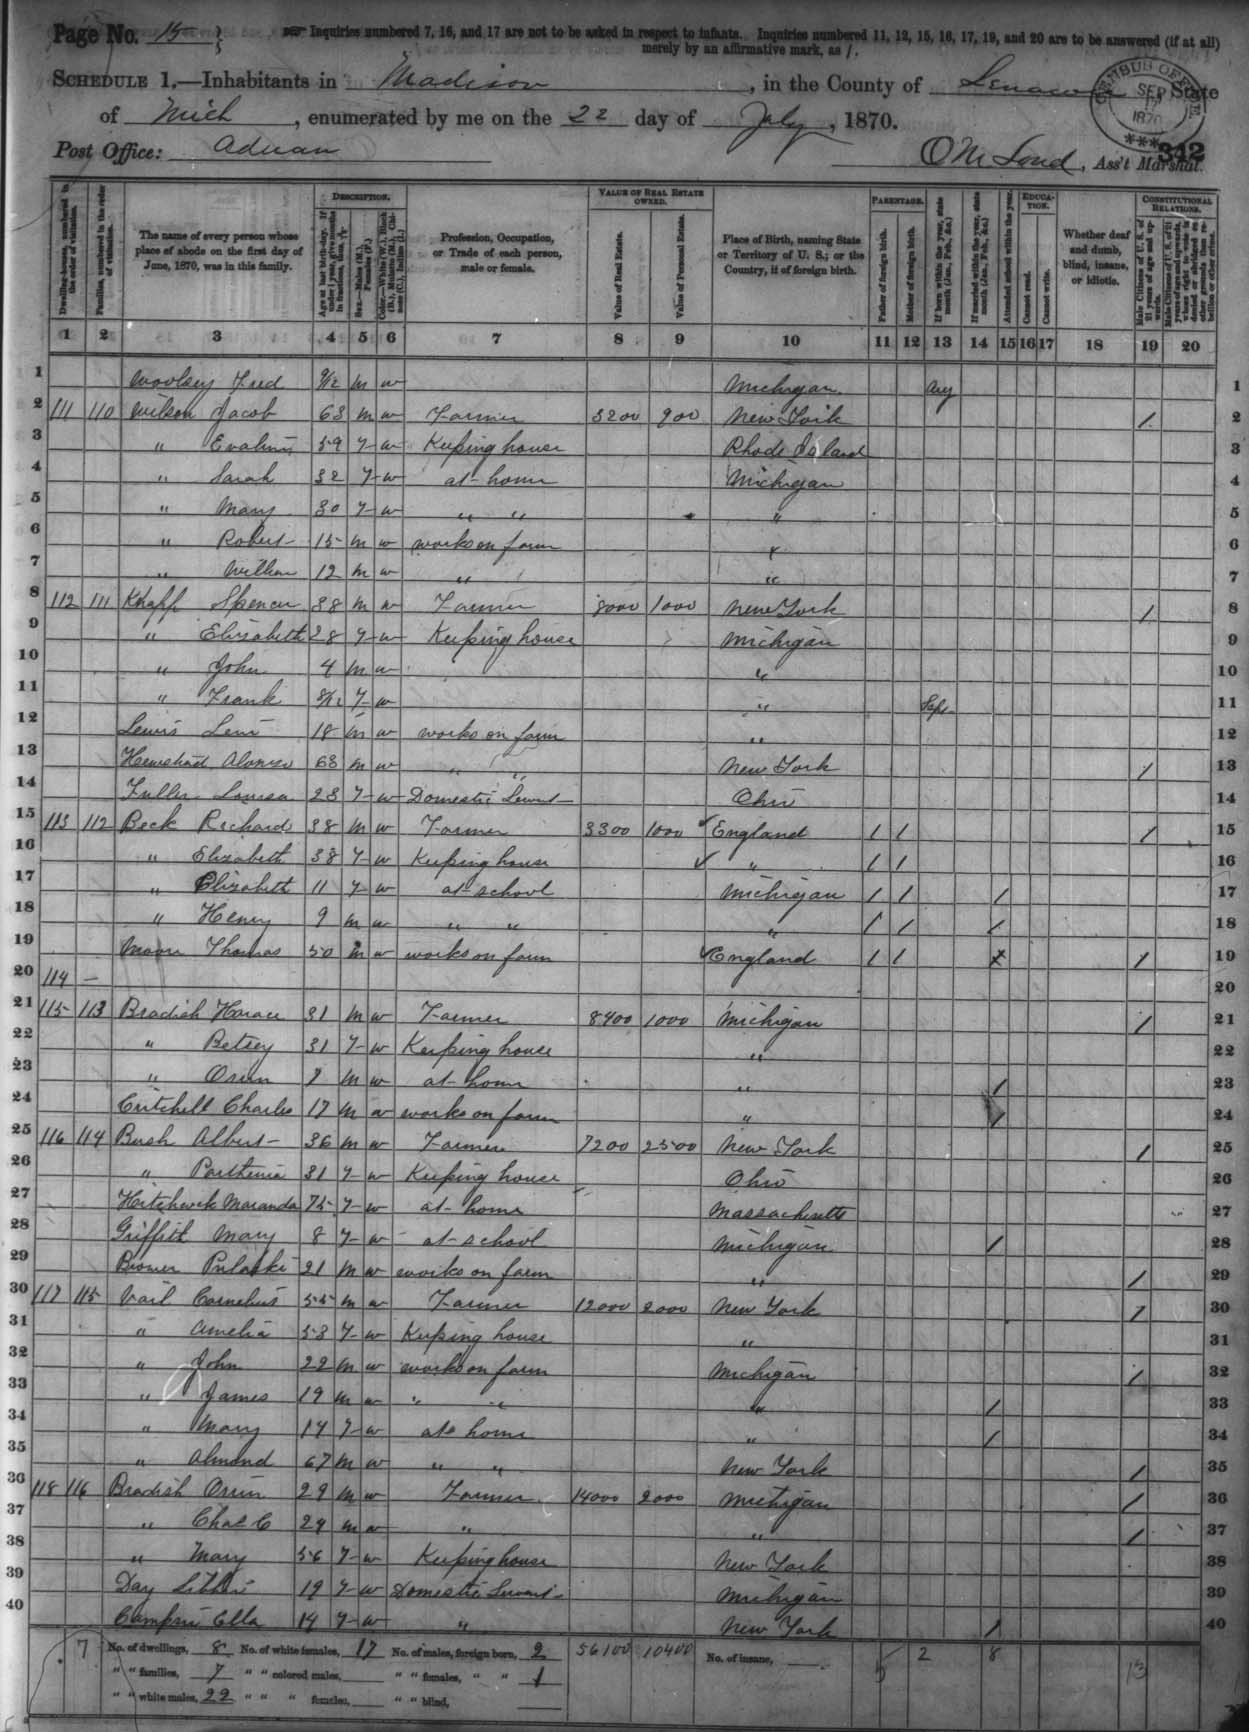 Page No. 15
Inquiries numbered 7, 16, and 17 are not to be asked in respect to infants. Inquiries numbered 11, 12, 15, 16, 17, 19, and 20 are to be answered (if at all) merely by an affirmative mark, as /.
SCHEDULE 1.—Inhabitants in Madison, in the County of Lenawee State
of Mich, enumerated by me on the 22 day of July, 1870.
CENSUS OFFICE SEP 17 1870
Post Office: Adrian
Ass't Marshal.
342
Dwelling-houses, numbered in the order of visitation.
Families, numbered in the order of visitation.
The name of every person whose place of abode on the first day of June, 1870, was in this family.
DESCRIPTION.
Age at last birth-day. If under 1 year, give months in fractions, thus, 3/12
Sex.—Males (M.), Females (F.)
Color.—White (W.), Black (B.), Mulatto (M.), Chinese (C.), Indian (I.)
Profession, Occupation, or Trade of each person, male or female.
VALUE OF REAL ESTATE OWNED.
Value of Real Estate.
Value of Personal Estate.
Place of Birth, naming State or Territory of U. S.; or the Country, if of foreign birth.
PARENTAGE.
Father of foreign birth.
Mother of foreign birth.
If born within the year, state month (Jan., Feb., &c.)
If married within the year, state month (Jan., Feb., &c.)
Attended school within the year.
EDUCATION.
Cannot read.
Cannot write.
Whether deaf and dumb, blind, insane, or idiotic.
CONSTITUTIONAL RELATIONS.
Male Citizens of U. S. of 21 years of age and upwards.
Male Citizens of U. S. of 21 years of age and upwards, whose right to vote is denied or abridged on other grounds than rebellion or other crime.
1 2 3 4 5 6 7 8 9 10 11 12 13 14 15 16 17 18 19 20
1 Woolsey Fred 9/12 M W Michigan Aug 1
2 111 110 Wilson Jacob 63 M W Farmer 3200 900 New York / 2
3 " 59 F W Keeping house Rhode Island 3
4 " Sarah 32 F W at home Michigan 4
5 " Mary 30 F W " " " 5
6 " Robert 15 M W works on farm " 6
7 " William 12 M W " " 7
8 112 111 Knapp Spencer 38 M W Farmer 8000 1000 New York / 8
9 " Elizabeth 28 F W Keeping house Michigan 9
10 " John 4 M W " 10
11 " Frank 8/12 F W " Sept 11
12 Lewis Levi 18 M W works on farm " 12
13 Alonzo 63 M W " " New York / 13
14 Fuller Louisa 23 F W Domestic Servt Ohio 14
15 113 112 Beck Richard 38 M W Farmer 3300 1000 England / / / 15
16 " Elizabeth 38 F W Keeping house " / / 16
17 " Elizabeth 11 F W at school Michigan / / / 17
18 " Henry 9 M W " " " / / / 18
19 Moore Thomas 50 M W works on farm England / / / 19
20 114 — 20
21 115 113 Bradish Horace 31 M W Farmer 8400 1000 Michigan / 21
22 " Betsey 31 F W Keeping house " 22
23 " Orrin 7 M W at home " / 23
24 Critchell Charles 17 M W works on farm " / 24
25 116 114 Bush Albert 36 M W Farmer 7200 2500 New York / 25
26 " Parthenia 31 F W Keeping house Ohio 26
27 Maranda 75 F W at home Massachusetts 27
28 Griffith Mary 8 F W at school Michigan / 28
29 Pulaski 21 M W works on farm " / 29
30 117 115 Vail Cornelius 55 M W Farmer 12000 2000 New York / 30
31 " Amelia 53 F W Keeping house " 31
32 " John 22 M W works on farm Michigan / 32
33 " James 19 M W " " " / 33
34 " Mary 14 F W at home " / 34
35 " Almond 67 M W " " New York / 35
36 118 116 Bradish Orrin 29 M W Farmer 14000 2000 Michigan / 36
37 " Chas C 29 M W " " / 37
38 " Mary 56 F W Keeping house New York 38
39 Day Libbie 19 F W Domestic Servant Michigan 39
40 Ella 14 F W " New York / 40
7 No. of dwellings, 8 No. of white females, 17 No. of males, foreign born, 2 56100 10400 No. of insane, 5 2 8 13
" " families, 7 " " colored males, " " females, " " 1
" " white males, 22 " " " females, " " blind,